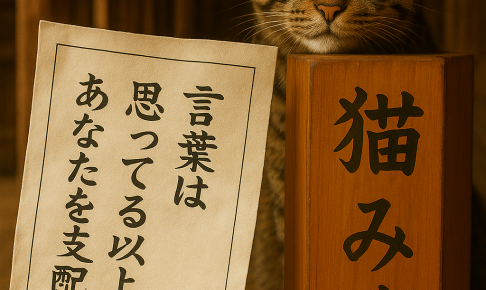 言葉は
思ってる以上
あなたを支配
猫み